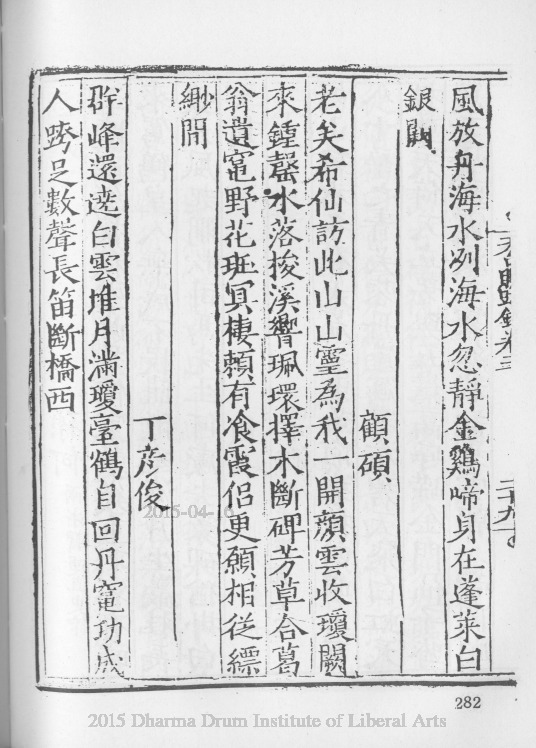 風放舟海水列海水忽靜金鷄啼身在蓬萊白
銀闕
顧碩
老矣希仙訪此山山靈為我一開顏雲收瓊闕
來鍾磬水落梭溪響珮環擇木斷碑芳草合葛
翁遺竈野花斑冥棲頼有飡霞侶更願相從縹
緲閒
丁彦俊
群峰還遶白雲堆月滿瓊臺鶴自回丹竈功成
人跨足數聲長笛斷橋西
282
2015 Dharma Drum Institute of Liberal Arts